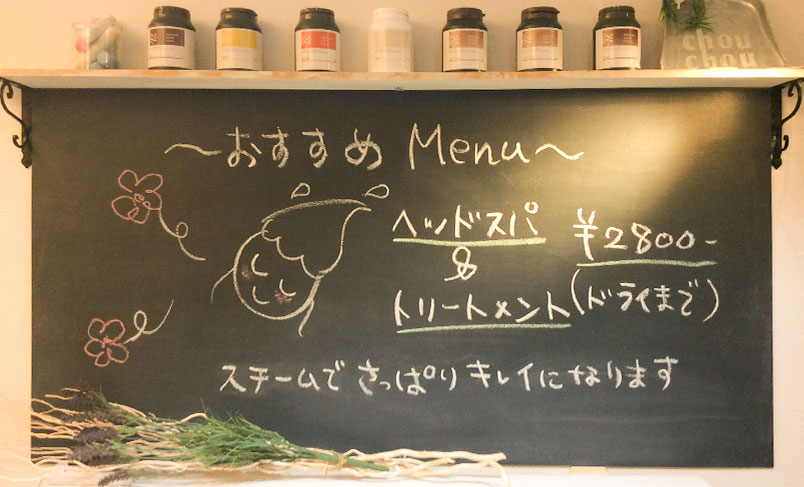 chou
chou
～おすすめ Menu～
ヘッドスパ ¥2800-
&
トリートメント(ドライまで)
スチームで さっぱり キレイになります